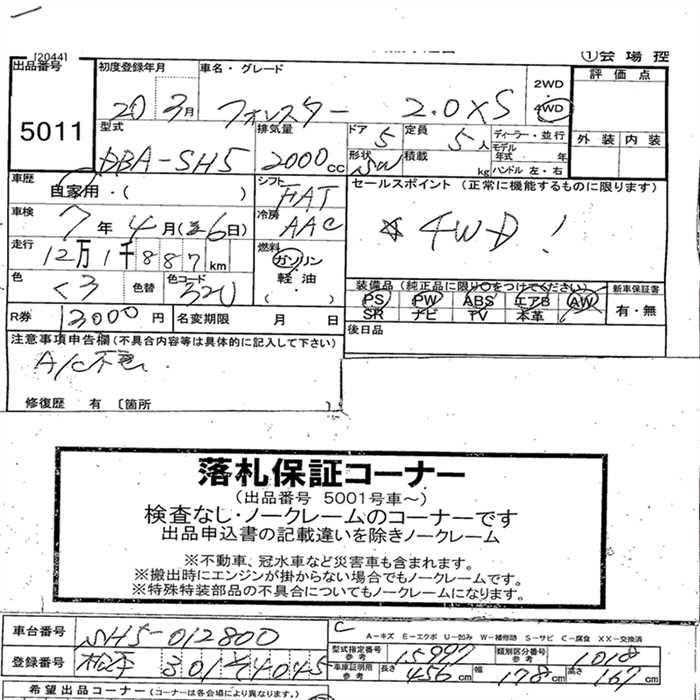 [2044]
①会場控
出品番号 初度登録年月 車名・グレード 2WD 4WD 評価点
5011 20 3月 フォレスター 2.0XS
型式 排気量 ドア 定員 ディーラー・並行 外装 内装
DBA-SH5 2000cc 5 5人 モデル年式 年
形状 積載 kg ハンドル 左・右
車歴 自家用・( ) シフト FAT セールスポイント (正常に機能するものに限ります)
車検 7年4月(26日) 冷房 AAC ☆ 4WD!
走行 12万1千887km 燃料 ガソリン
色 くろ 色替 色コード 32U 軽・油 ( )
装備品 (純正品に限り○をつけてください) 新車保証書
PS PW ABS エアB AW 有・無
SR ナビ TV 本革
R券 12000円 名変期限 月 日 後日品
注意事項申告欄(不具合内容等は具体的に記入して下さい)
A/C不良
修復歴 有 〔箇所
落札保証コーナー
(出品番号 5001号車~)
検査なし・ノークレームのコーナーです
出品申込書の記載違いを除きノークレーム
※不動車、冠水車など災害車も含まれます。
※搬出時にエンジンが掛からない場合でもノークレームです。
※特殊特装部品の不具合についてもノークレームになります。
車台番号 SH5-012800
A-キズ E-エクボ U-凹み W-補修跡 S-サビ C-腐食 XX-交換済
型式指定番号 参考 15997 類別区分番号 参考 1018
登録番号 松本 301 4045
車庫証明用 参考 長さ 456cm 幅 178cm 高さ 167cm
希望出品コーナー (コーナーは各会場により異なります。)